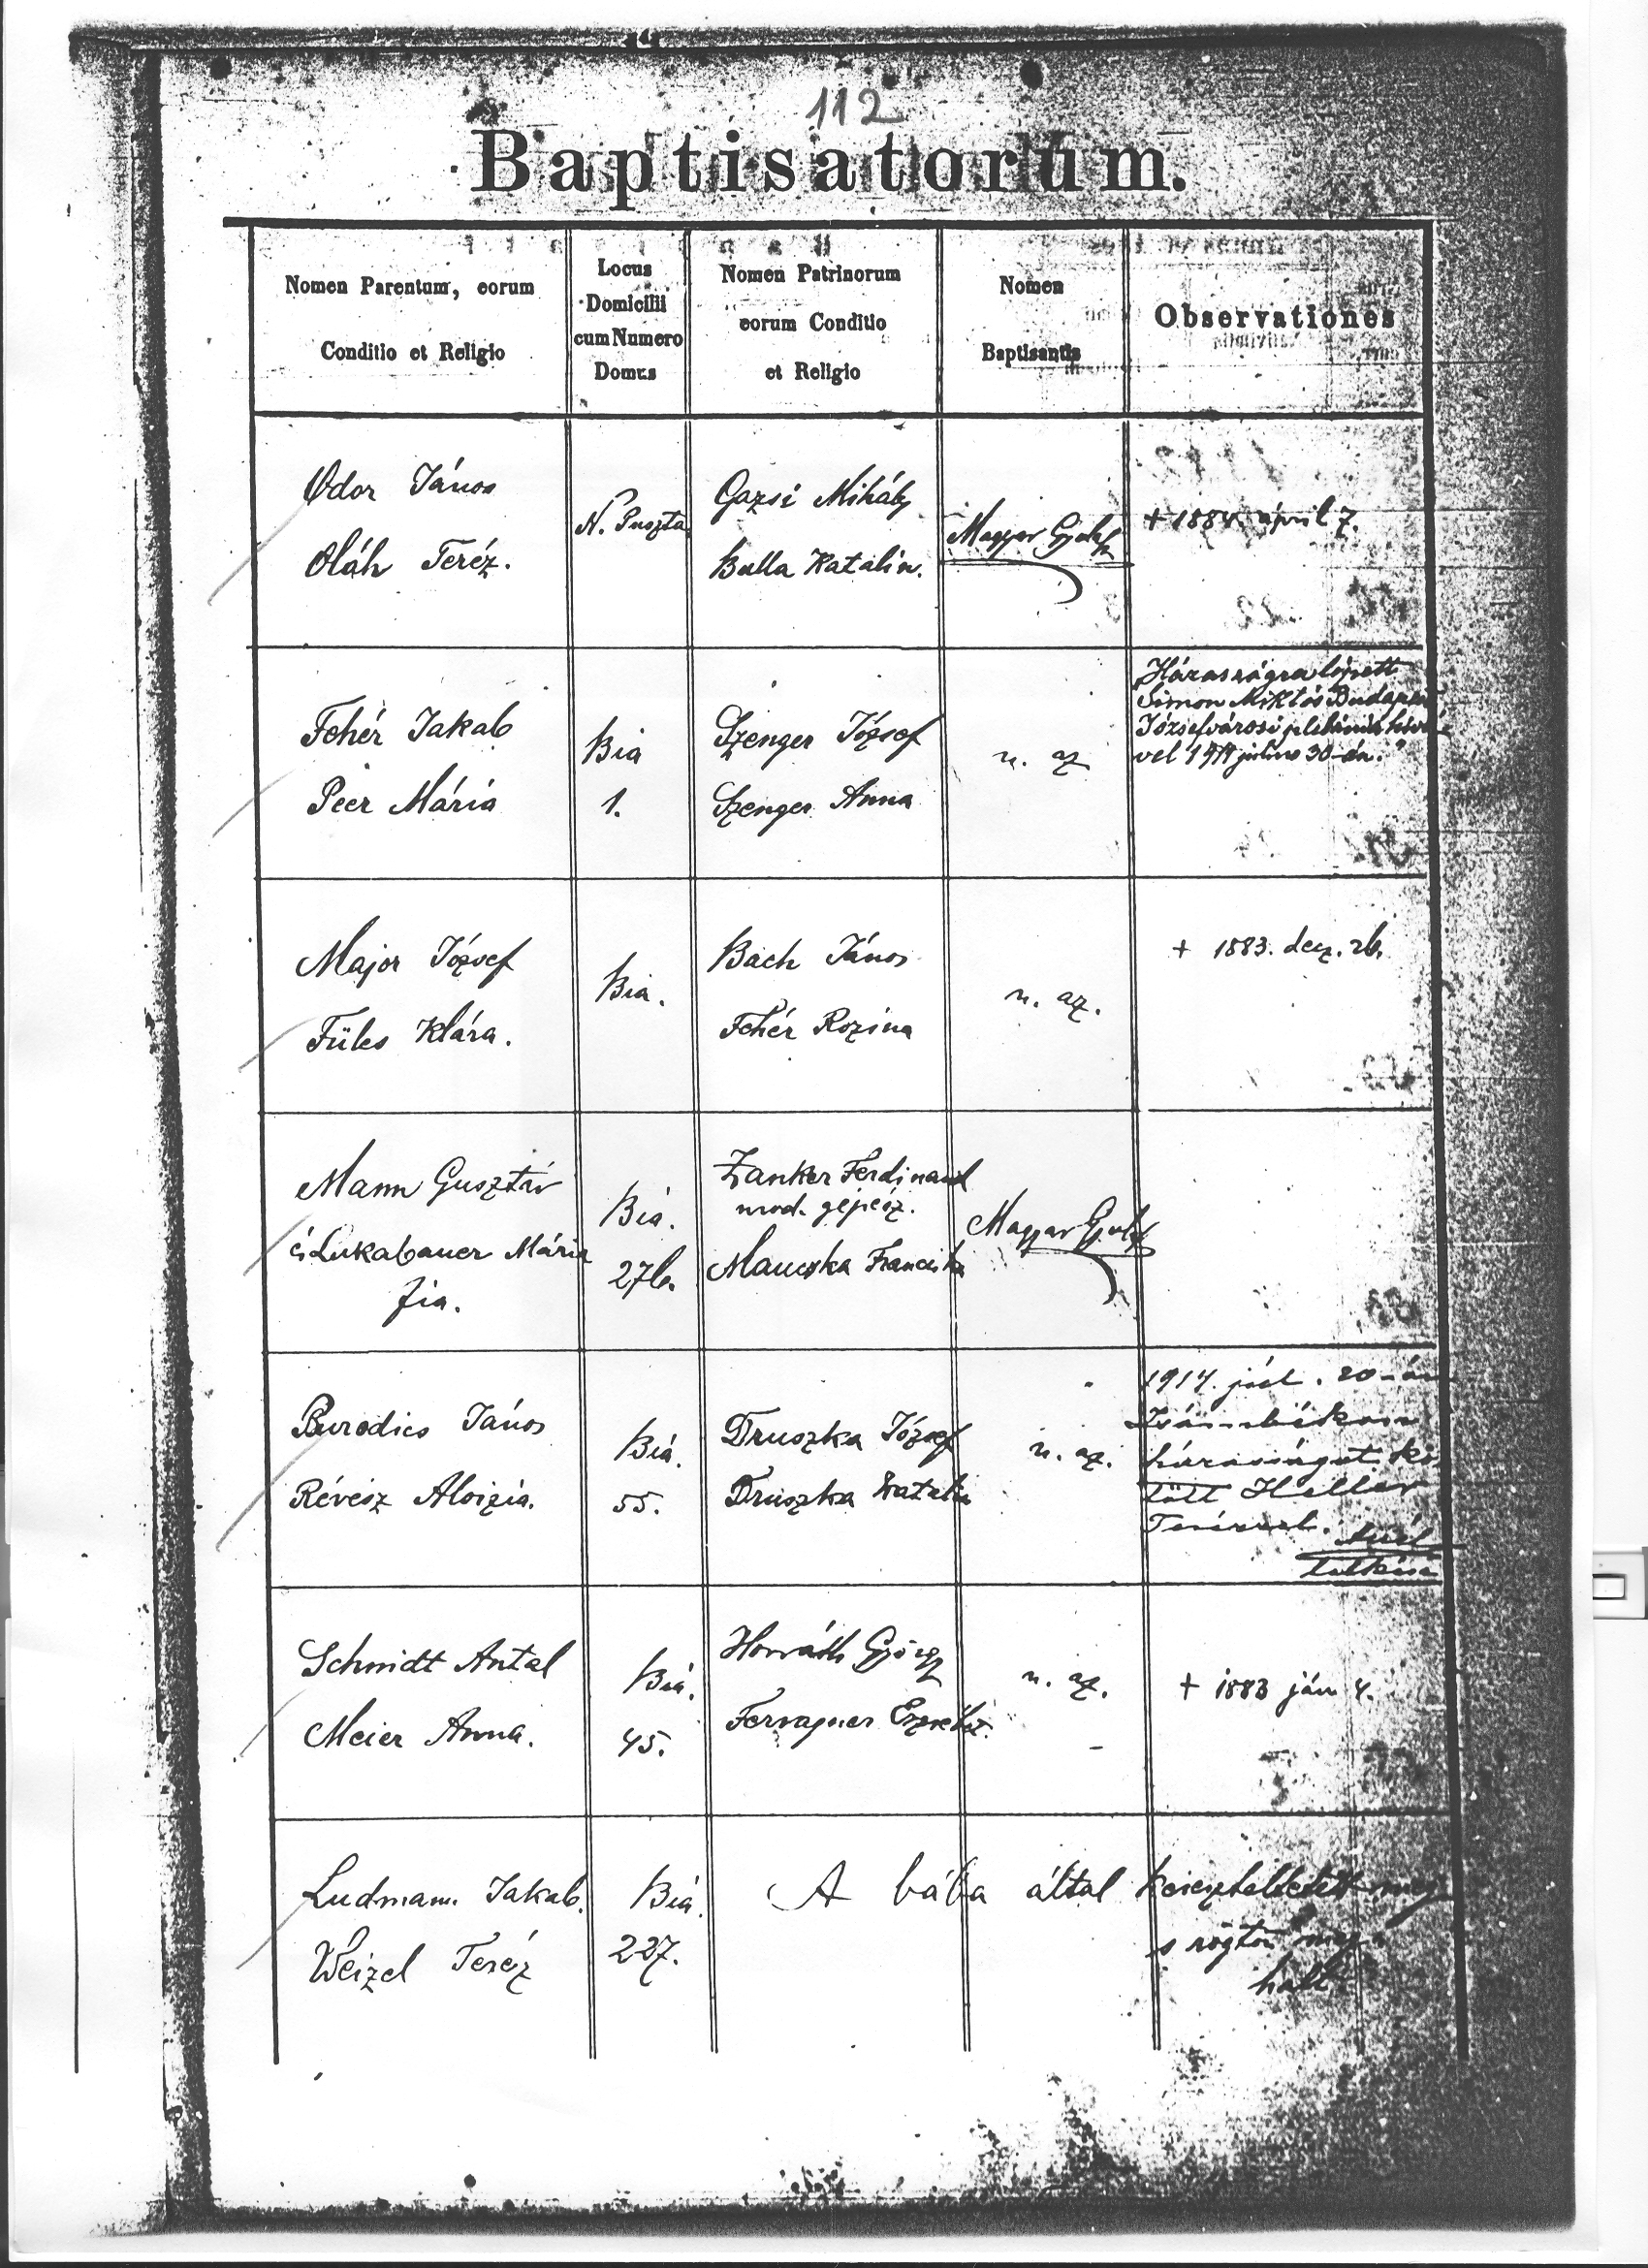 112
Baptisatorum.
Nomen Parentum, eorum
Conditio et Religio
Locus
Domicilii
cum Numero
Domus
Nomen Patrinorum
eorum Conditio
et Religio
Nomen
Baptisantis
Observationes
Odor János
Oláh Teréz.
N. Puszta
Gazsi Mihály
Bulla Katalin.
Magyar Gyula
+ 1884. április 7.
Fehér Jakab
Peer Mária
Bia
1.
Szenger József
Szenger Anna
u. az
Házasságra lépett
Simon Miklós Budapest
Józsefvárosi plébánia
vel 1911 július 30-án.
Major József
Füles Klára.
Bia.
Bach János
Fehér Rozina
u. az.
+ 1883. dez. 26.
Mann Gusztáv
és Lukabauer Mária
fia.
Bia.
276.
Zanker Ferdinand
urod. gépész.
Franciska
Magyar Gyula
Purodics János
Révész Aloizia.
Bia.
55.
Druszka József
Druszka Katalin
u. az.
1914. júl. 20-án
Zsámbékon
házasságot kö-
tött Heller
Terézzel.
Schmidt Antal
Meier Anna.
Bia.
45.
Horváth György
Fervagner Erzsébet.
u. az.
+ 1883 jan 4.
Ludmann Jakab.
Weizel Teréz
Bia.
227.
A bába által kereszteltetett meg
s rögtön meg-
halt.